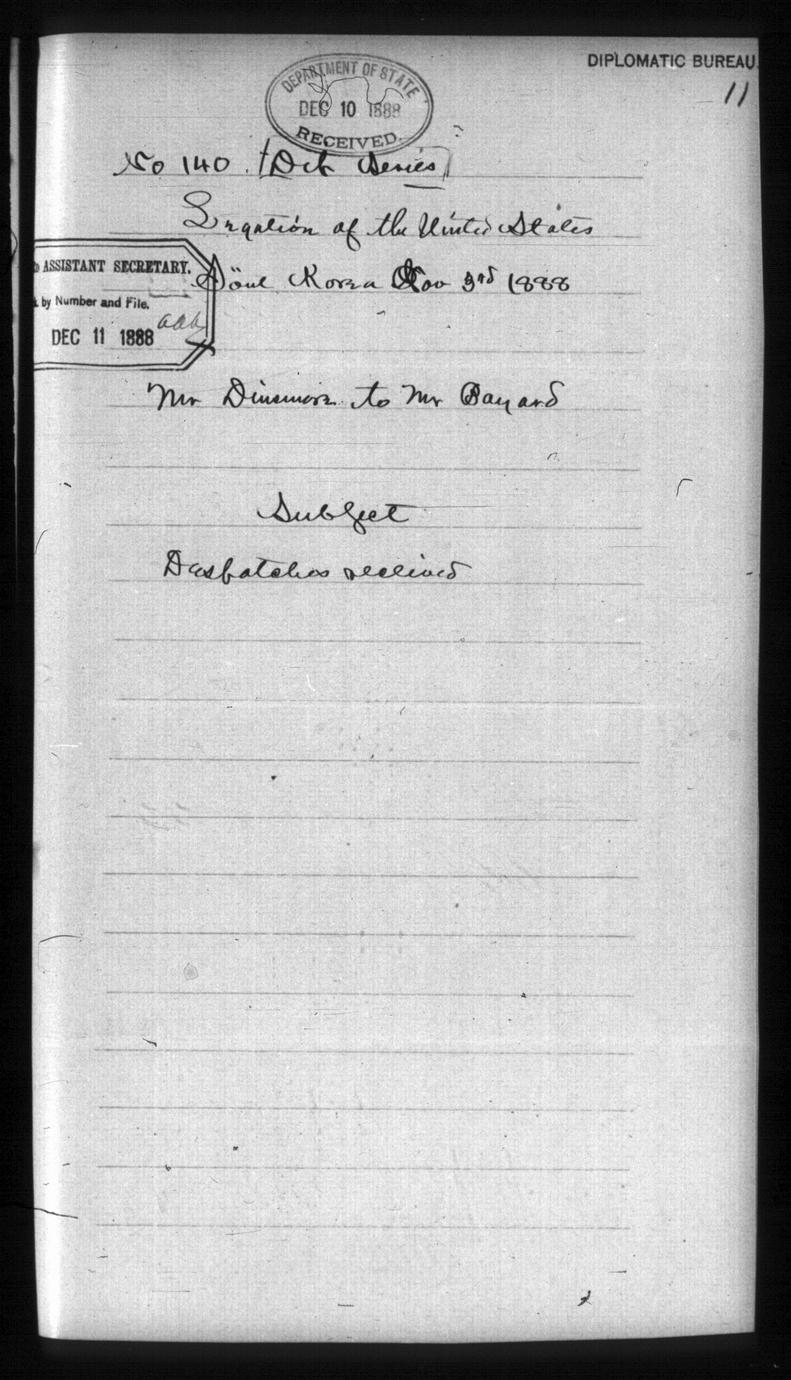 DIPLOMATIC BUREAU.
11
DEPARTMENT OF STATE
DEC 10 1888
RECEIVED.
No 140. (Dip Series)
Legation of the United States
Söul Korea Nov 3rd 1888
ASSISTANT SECRETARY.
by Number and File.
DEC 11 1888
Mr Dinsmore to Mr Bayard
Subject
Despatches received